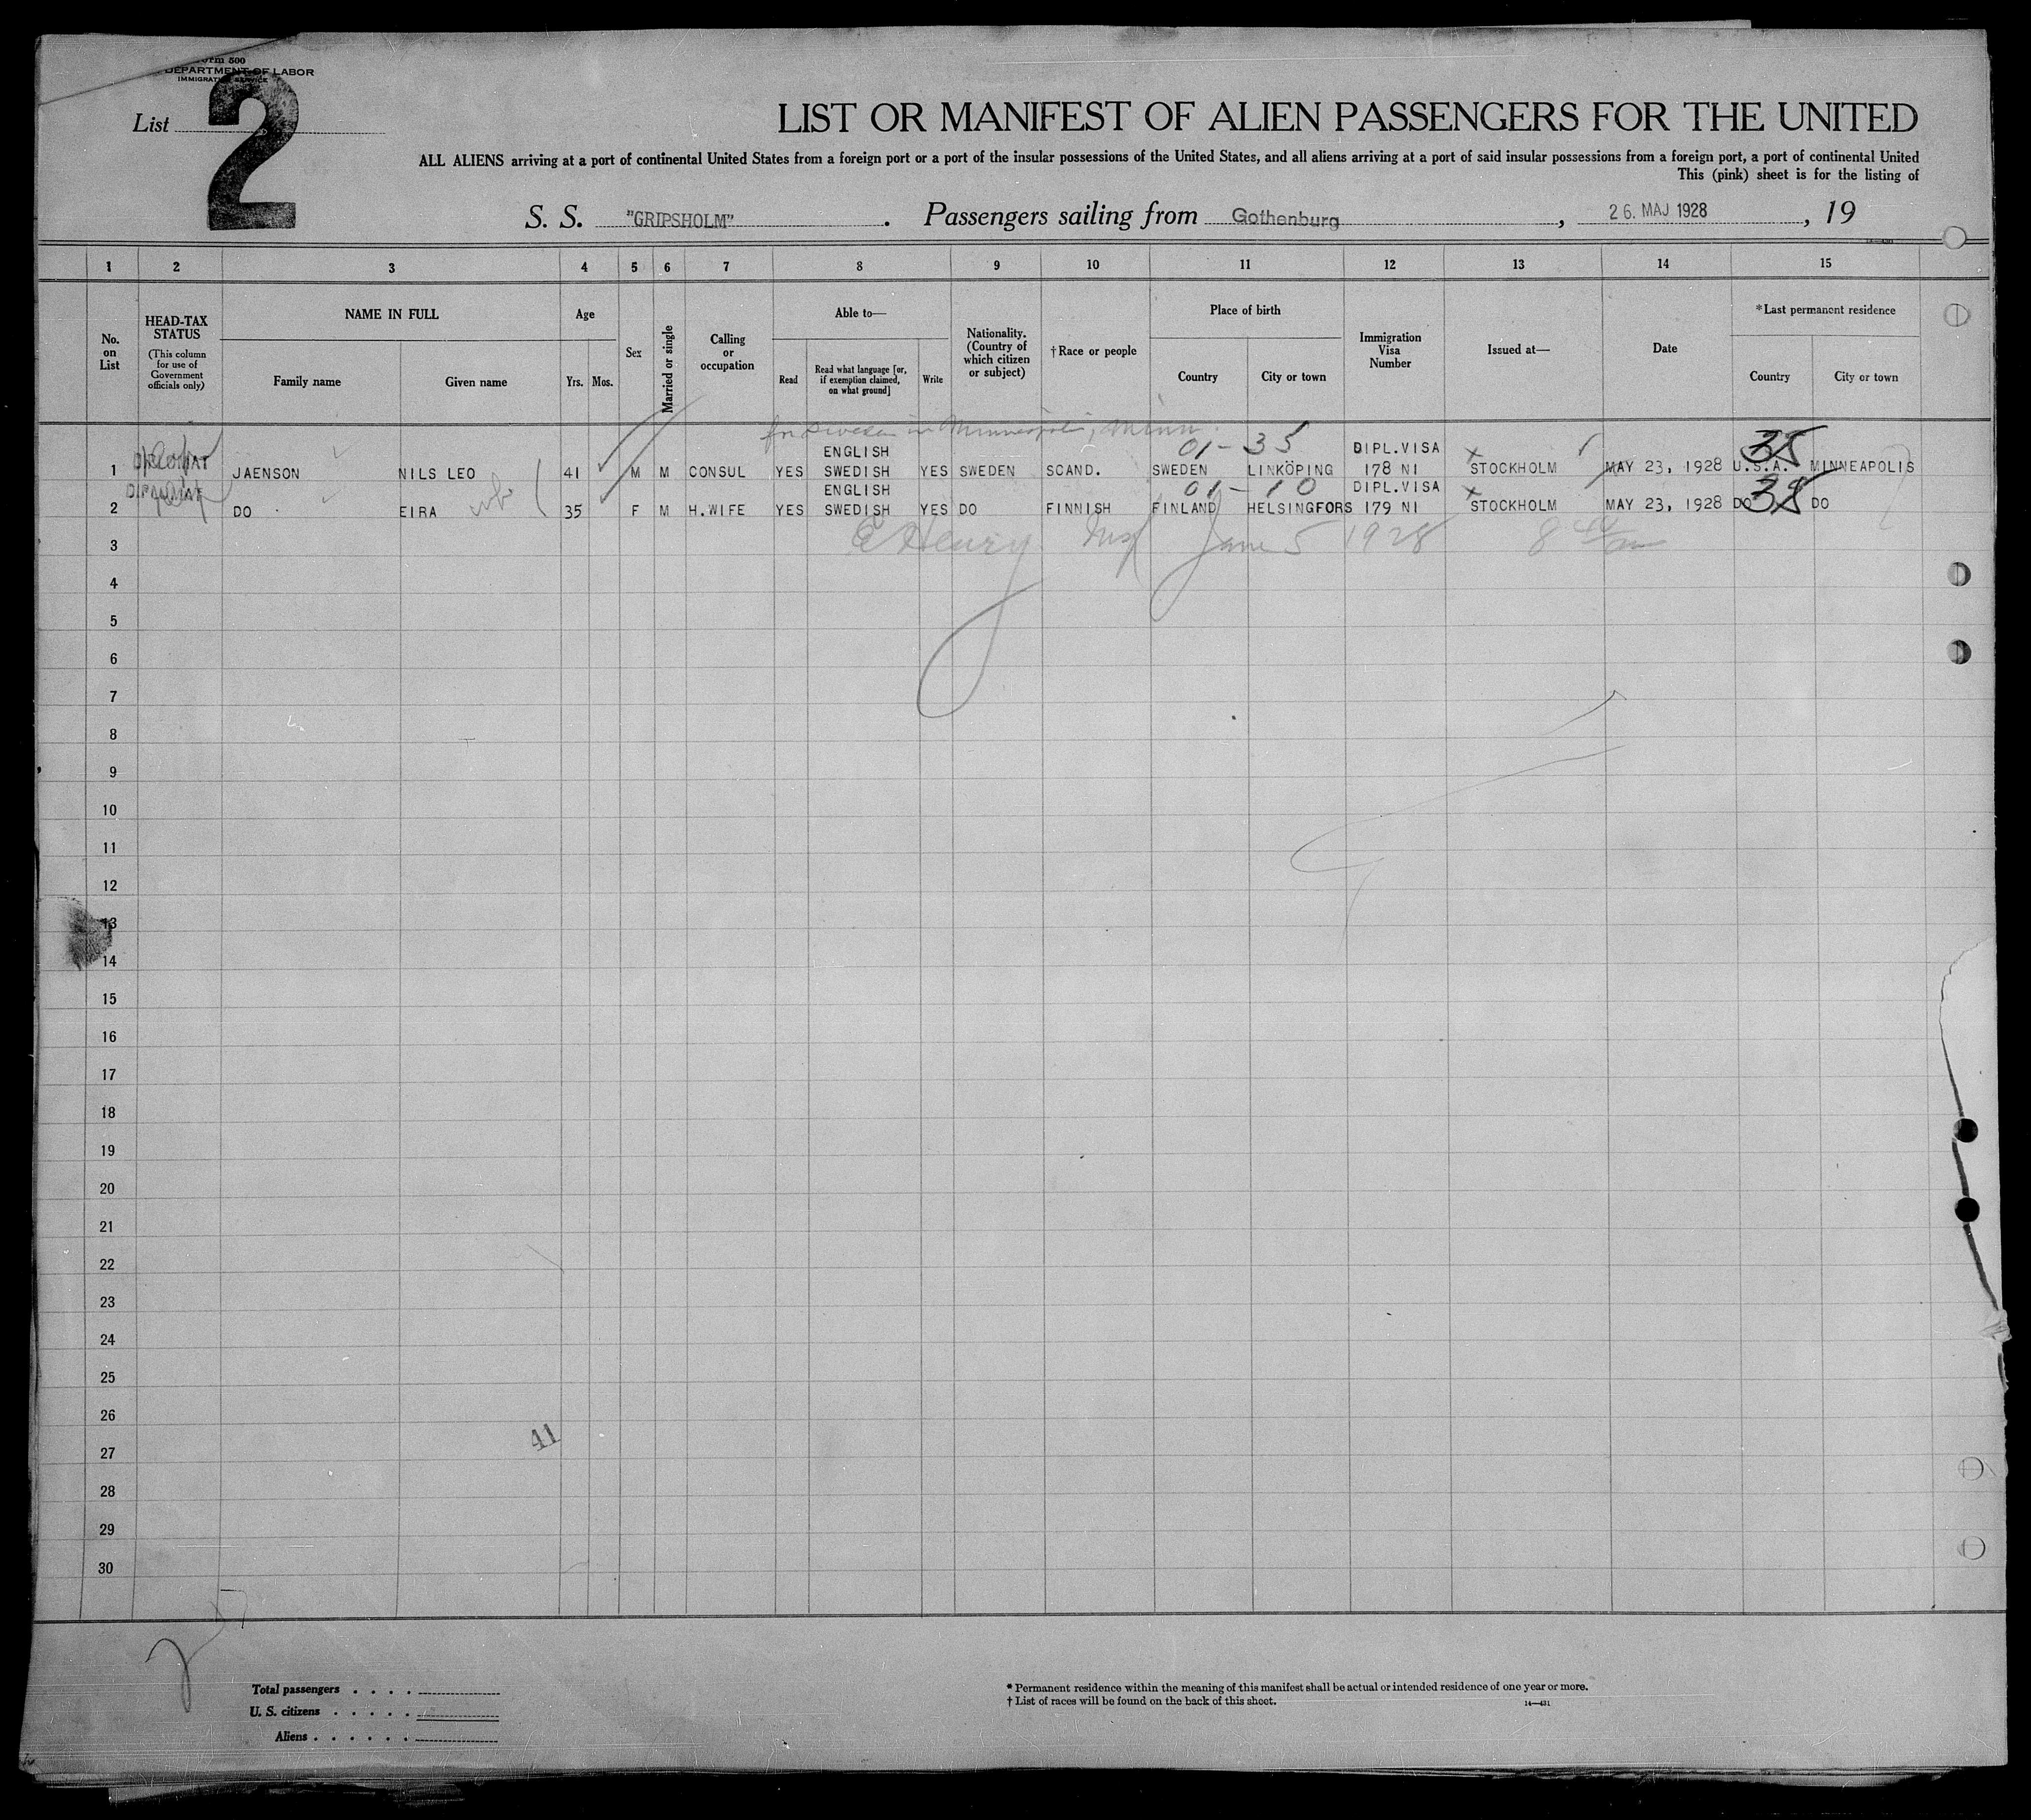 Form 500
DEPARTMENT OF LABOR
IMMIGRATION SERVICE
List 2
LIST OR MANIFEST OF ALIEN PASSENGERS FOR THE UNITED
ALL ALIENS arriving at a port of continental United States from a foreign port or a port of the insular possessions of the United States, and all aliens arriving at a port of said insular possessions from a foreign port, a port of continental United
This (pink) sheet is for the listing of
S. S. "GRIPSHOLM". Passengers sailing from Gothenburg, 26. MAJ 1928, 19
14—430
1 2 3 4 5 6 7 8 9 10 11 12 13 14 15
No. on List
HEAD-TAX STATUS
(This column for use of Government officials only)
NAME IN FULL
Family name Given name
Age
Yrs. Mos.
Sex
Married or single
Calling or occupation
Able to—
Read
Read what language [or, if exemption claimed, on what ground]
Write
Nationality. (Country of which citizen or subject)
†Race or people
Place of birth
Country City or town
Immigration Visa Number
Issued at—
Date
*Last permanent residence
Country City or town
for Sweden in Minneapolis, Minn.
01-35 35
ENGLISH DIPL.VISA
1 DIPLOMAT JAENSON NILS LEO 41 M M CONSUL YES SWEDISH YES SWEDEN SCAND. SWEDEN LINKÖPING 178 NI STOCKHOLM MAY 23, 1928 U.S.A. MINNEAPOLIS
ENGLISH 01-10 DIPL.VISA
2 DIPLOMAT DO EIRA wife 35 F M H.WIFE YES SWEDISH YES DO FINNISH FINLAND HELSINGFORS 179 NI STOCKHOLM MAY 23, 1928 DO DO
3 E Henry Insp June 5 1928
4
5
6
7
8
9
10
11
12
13
14
15
16
17
18
19
20
21
22
23
24
25
26
41
27
28
29
30
Total passengers . . . .
U. S. citizens . . . . .
Aliens . . . . . .
* Permanent residence within the meaning of this manifest shall be actual or intended residence of one year or more.
† List of races will be found on the back of this sheet.
14—431